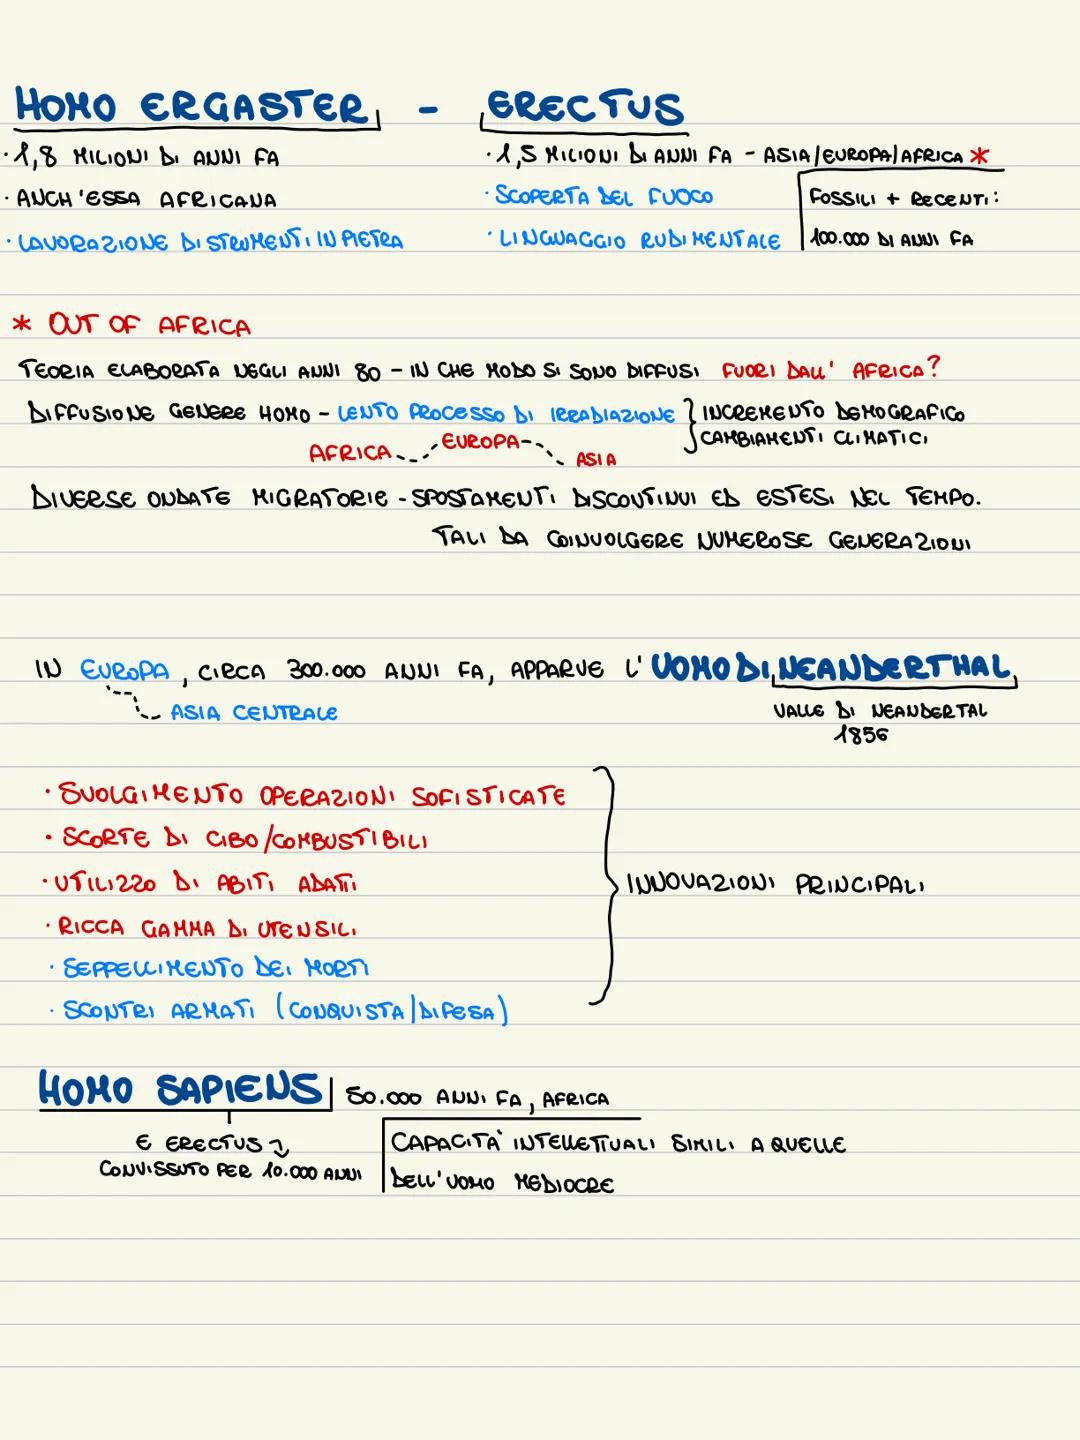 HOMO ERGASTER - ERECTUS
· 1,8 MILIONI DI ANNI FA
· ANCH'ESSA AFRICANA
· LAVORAZIONE DI STRUMENTI IN PIETRA
· 1,5 MILIONI DI ANNI FA - ASIA/EUROPA/AFRICA *
· SCOPERTA DEL FUOCO
· LINGUAGGIO RUDIMENTALE
FOSSILI + RECENTI:
100.000 DI ANNI FA
* OUT OF AFRICA
TEORIA ELABORATA NEGLI ANNI 80 - IN CHE MODO SI SONO DIFFUSI FUORI DALL' AFRICA?
DIFFUSIONE GENERE HOMO - LENTO PROCESSO DI IRRADIAZIONE } INCREMENTO DEMOGRAFICO
CAMBIAMENTI CLIMATICI
AFRICA --- EUROPA --- ASIA
DIVERSE ONDATE MIGRATORIE - SPOSTAMENTI DISCONTINUI ED ESTESI NEL TEMPO.
TALI DA COINVOLGERE NUMEROSE GENERAZIONI
IN EUROPA, CIRCA 300.000 ANNI FA, APPARVE L'UOMO DI NEANDERTHAL
ASIA CENTRALE
VALLE DI NEANDERTAL
1856
· SVOLGIMENTO OPERAZIONI SOFISTICATE
· SCORTE DI CIBO/COMBUSTIBILI
· UTILIZZO DI ABITI ADATTI
· RICCA GAMMA DI UTENSILI
· SEPPELLIMENTO DEI MORTI
· SCONTRI ARMATI (CONQUISTA/DIFESA)
INNOVAZIONI PRINCIPALI
HOMO SAPIENS 50.000 ANNI FA, AFRICA
E ERECTUS
CONVISSUTO PER 10.000 ANNI
CAPACITÀ INTELLETTUALI SIMILI A QUELLE
DELL'UOMO MEDIOCRE